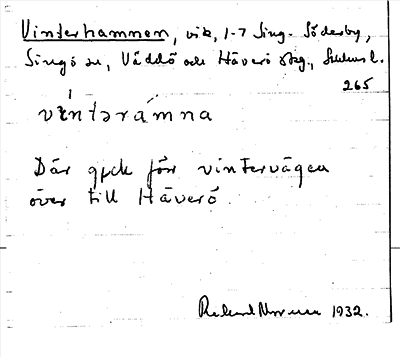 Vinterhamnen, vik, 1-7 Sing. Söderby,
Singö sn, Väddö och Häverö skg., Sthlms l.
265
vìntərámna
Där gick för vintervägen
över till Häverö.
Rickard 1932.